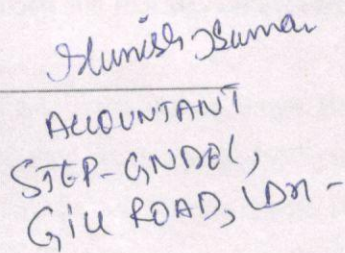 Munish Kumar
ACCOUNTANT
STEP-GNDEC,
Gill ROAD, LDH-